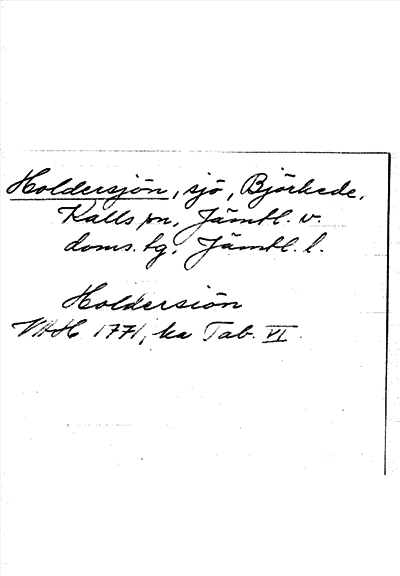 Holdersjön, sjö, Björkede,
Kalls sn, Jämtl. v.
doms. tg, Jämtl. l.
Holdersiön
VAH 1771, ka Tab. VI.